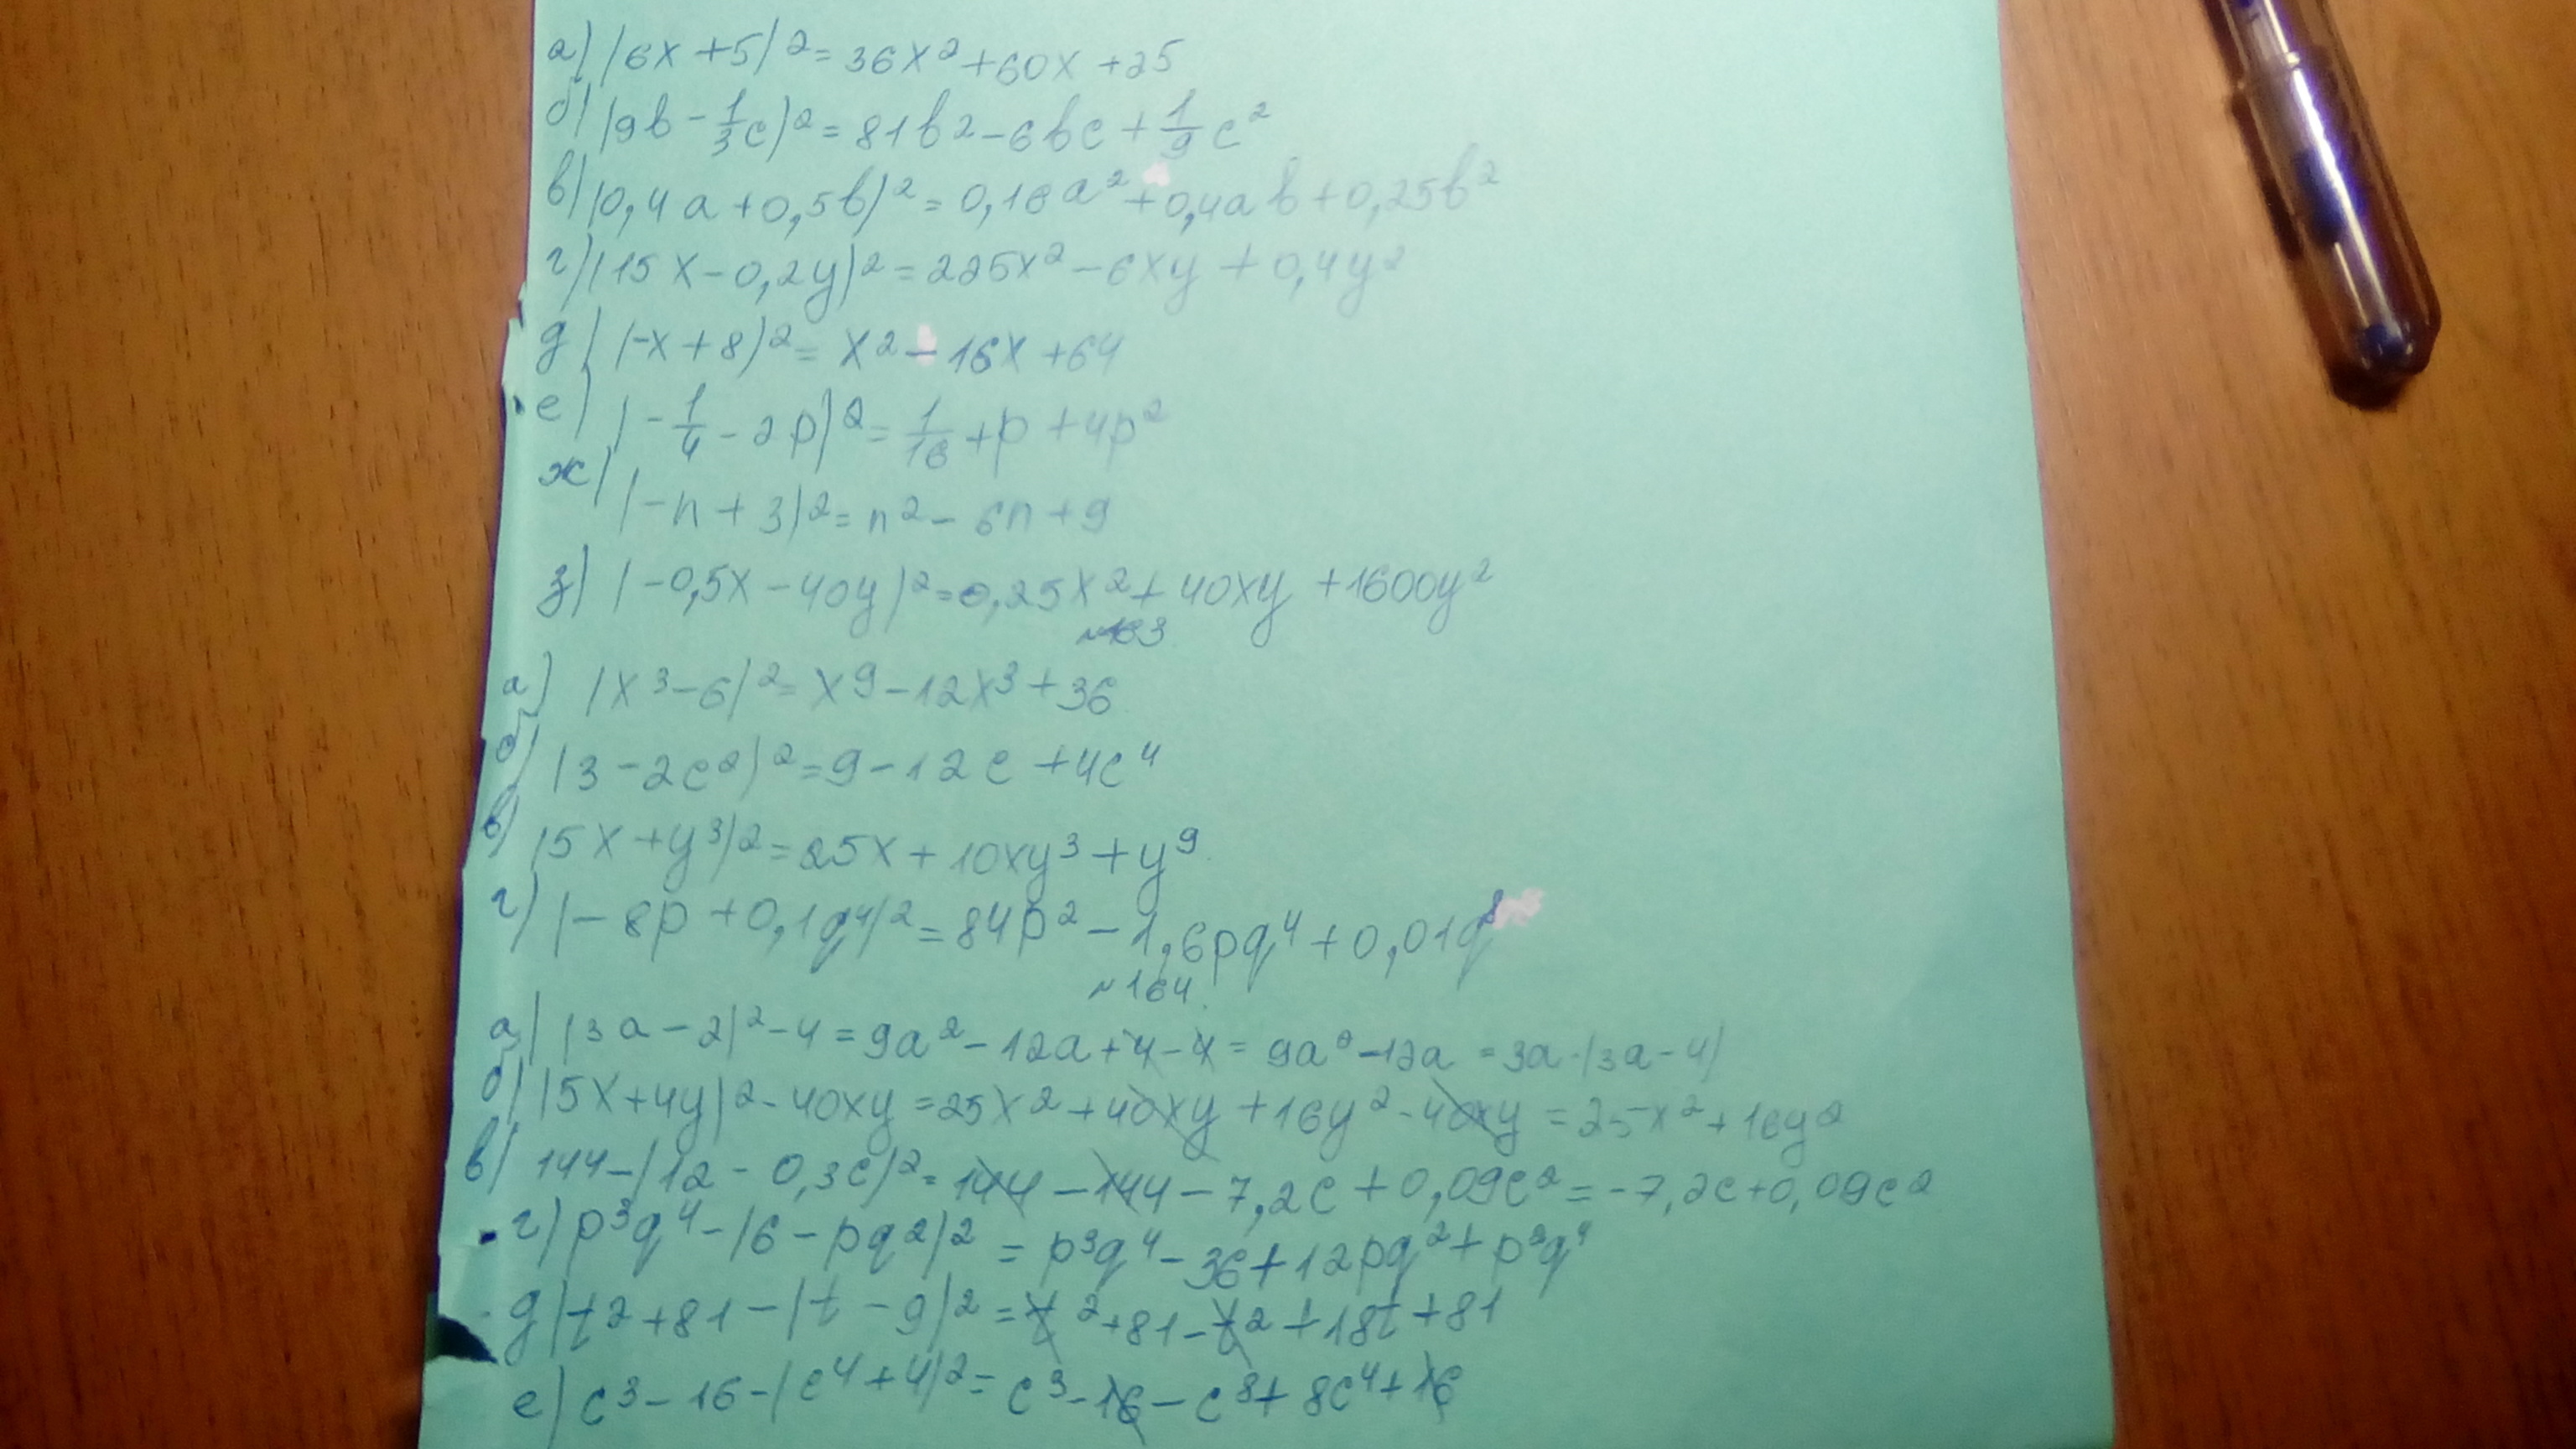 а) (6x+5)²=36x²+60x+25
б) (9b-1/3c)²=81b2-6bc+1/9c²
в) (0,4a+0,5b)²=0,16a²+0,4ab+0,25b²
г) (15x-0,2y)²=225x²-6xy+0,4y²
д) (-x+8)²=x²-16x+64
е) (-1/4-2p)²=1/16+p+4p²
ж) (-n+3)²=n²-6n+9
з) (-0,5x-40y)²=0,25x²+40xy+1600y²
№163
а) (x³-6)²=x⁹-12x³+36
б) (3-2c²)²=9-12c+4c⁴
в) (5x+y³)²=25x+10xy³+y⁹
г) (-8p+0,1q⁴)²=84p²-1,6pq⁴+0,01q⁸
№164.
а) (3a-2)²-4=9a²-12a+4-4=9a²-12a=3a·(3a-4)
б) (5x+4y)²-40xy=25x²+40xy+16y²-40xy=25x²+16y²
в) 144-(12-0,3c)²=144-144-7,2c+0,09c²=-7,2c+0,09c²
г) p³q⁴-(6-pq²)²=p³q⁴-36+12pq²+p²q⁴
д) t²+81-(t-9)²=t²+81-t²+18t+81
е) c³-16-(c⁴+4)²=c³-16-c⁸+8c⁴+16